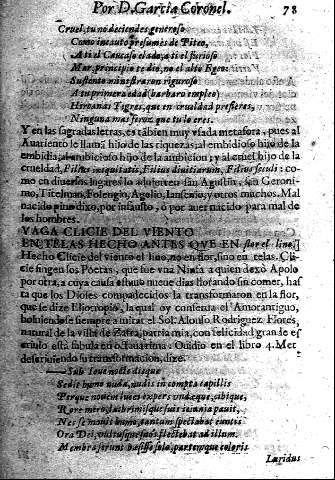 Por D. Garcia Coronel. 78
Cruel, tu no deciendes generoso
Como incauto presumes de Piteo,
A ti el Caucaso elado, a ti el furioso
Mar, principio te dio, no el alto Egeo:
Sustento ministraron riguroso
A tu primera edad (barbaro empleo)
Hircanas Tegres, que en crueldad prefieres,
Ninguna mas feroz que tu lo eres.
Y en las sagradas letras, es tãbien muy vsada metafora, pues al
Auariento le llamã hijo de las riquezas, al embidioso hijo de la
embidia, al ambicioso hijo de la ambicion, y al cruel hijo de la
crueldad, Filius iniquitatis, Filius diuitiarum, Filius seculi: co-
mo en diuersos lugares lo aduierten san Agustin, san Geroni-
mo, Titelmans, Folengio, Agelio, Iansenio, y otros muchos. Mal
nacido pues dixo, por infausto, ò por auer nacido para mal de
los hombres.
VAGA CLICIE DEL VIENTO
EN TELAS HECHO ANTES QVE EN flor el lino.]
Hecho Clicie del viento el lino, no en flor, sino en telas. Cli-
cie fingen los Poetas, que fue vna Ninfa a quien dexò Apolo
por otra, a cuya causa estuuo nueue dias llorando sin comer, has-
ta que los Dioses compadecidos la transformaron en la flor,
que se dize Eliotropia, la qual oy conserua el Amorantiguo,
boluiendose siempre a mirar el Sol. Alonso Rodriguez Flores,
natural de la villa de Zafra, patria mia, con felicidad grande es
criuio esta fabula en octaua rima: Ouidio en el libro 4. Met
descriuiendo su transformacion, dize.
—Sub Ioue nocte dieque
Sedit humo nuda, nudis incompta capillis
Perque nouem luces expers vndæque, cibique,
Rore mero, lachrimisque suis ieiunia pauit,
Nec se mouit humo, tantum spectabat euntis
Ora Dei, vultusque suos flectebat ad illum.
Membra ferunt hæsisse solo, partemque coloris
Luridus